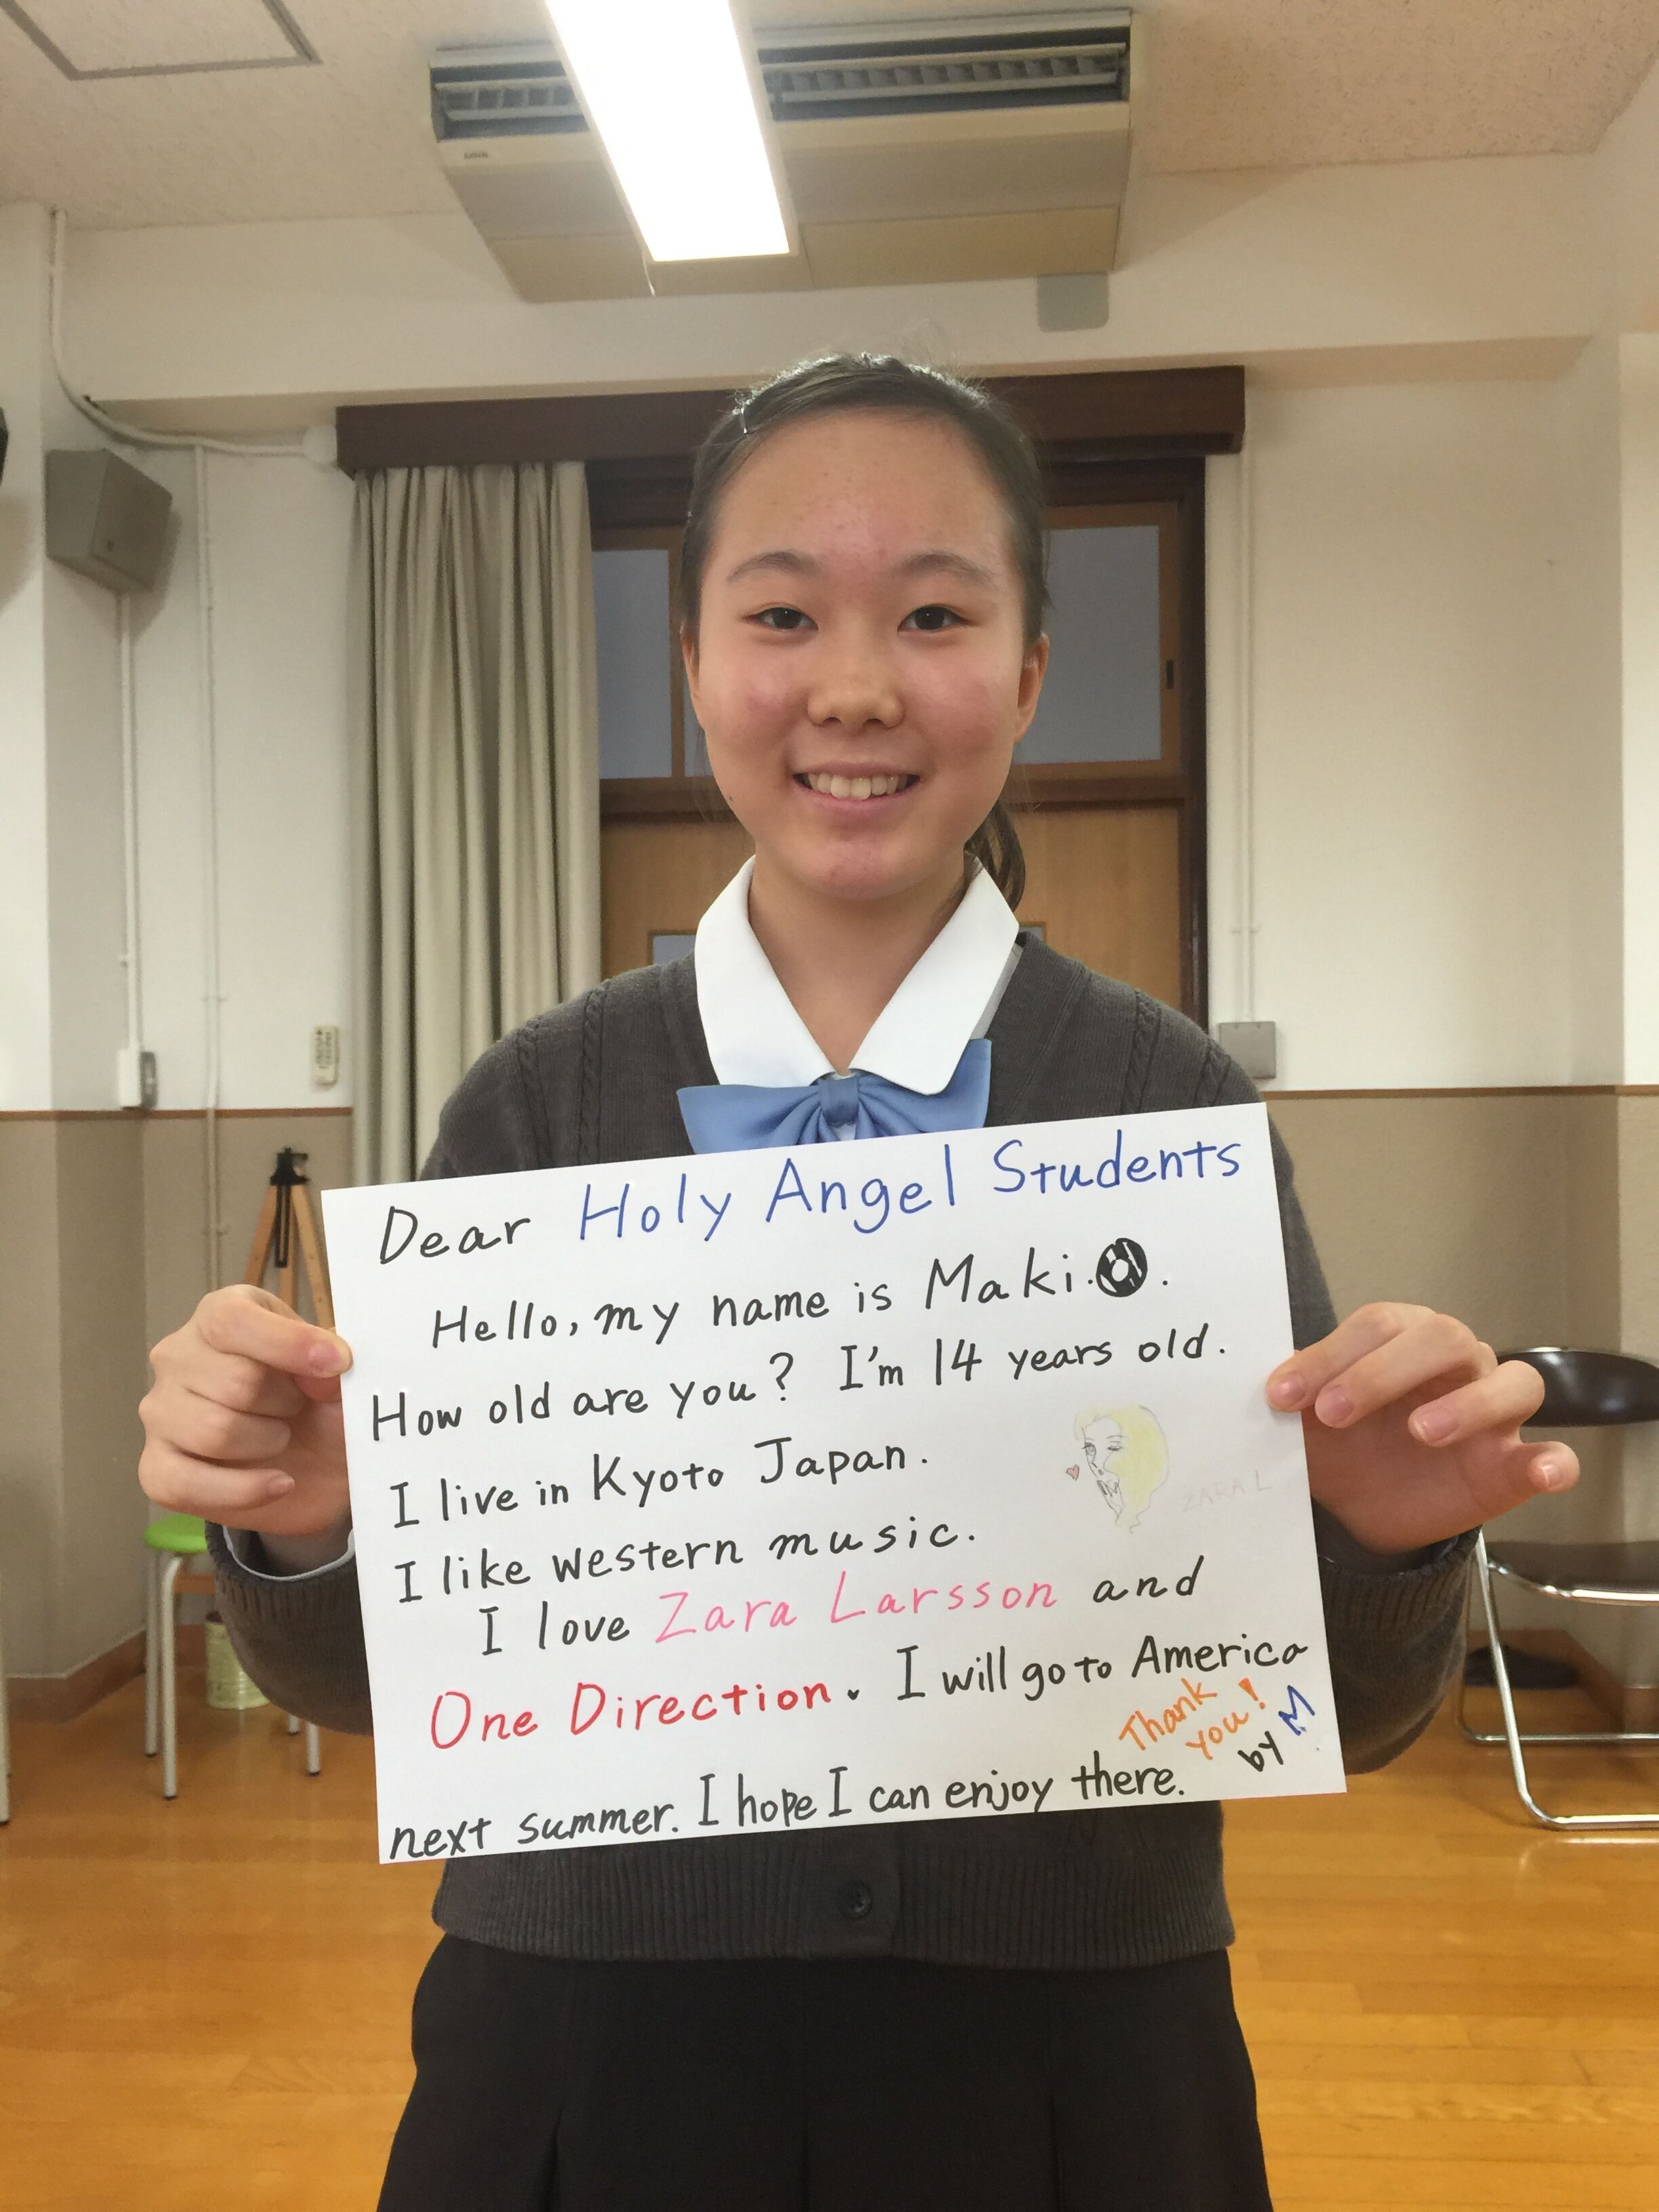 Dear Holy Angel Students
Hello, my name is Maki.
How old are you? I'm 14 years old.
I live in Kyoto Japan.
ZARA L
I like western music.
I love Zara Larsson and
One Direction. I will go to America
next summer. I hope I can enjoy there.
Thank
you!
by M